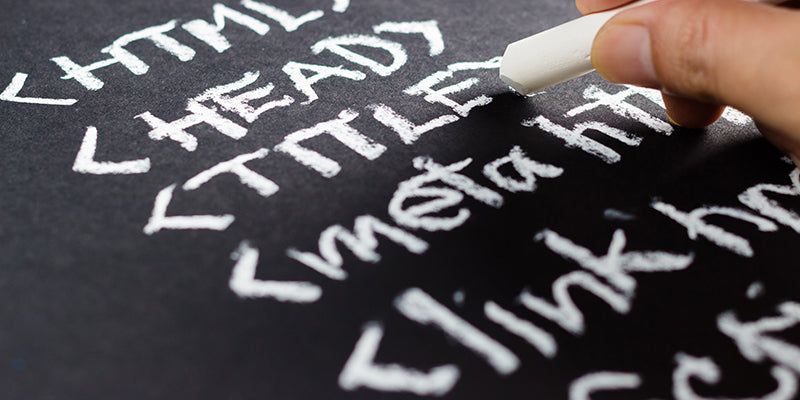 <HTML>
<HEAD>
<TITLE
<meta htt
<link h